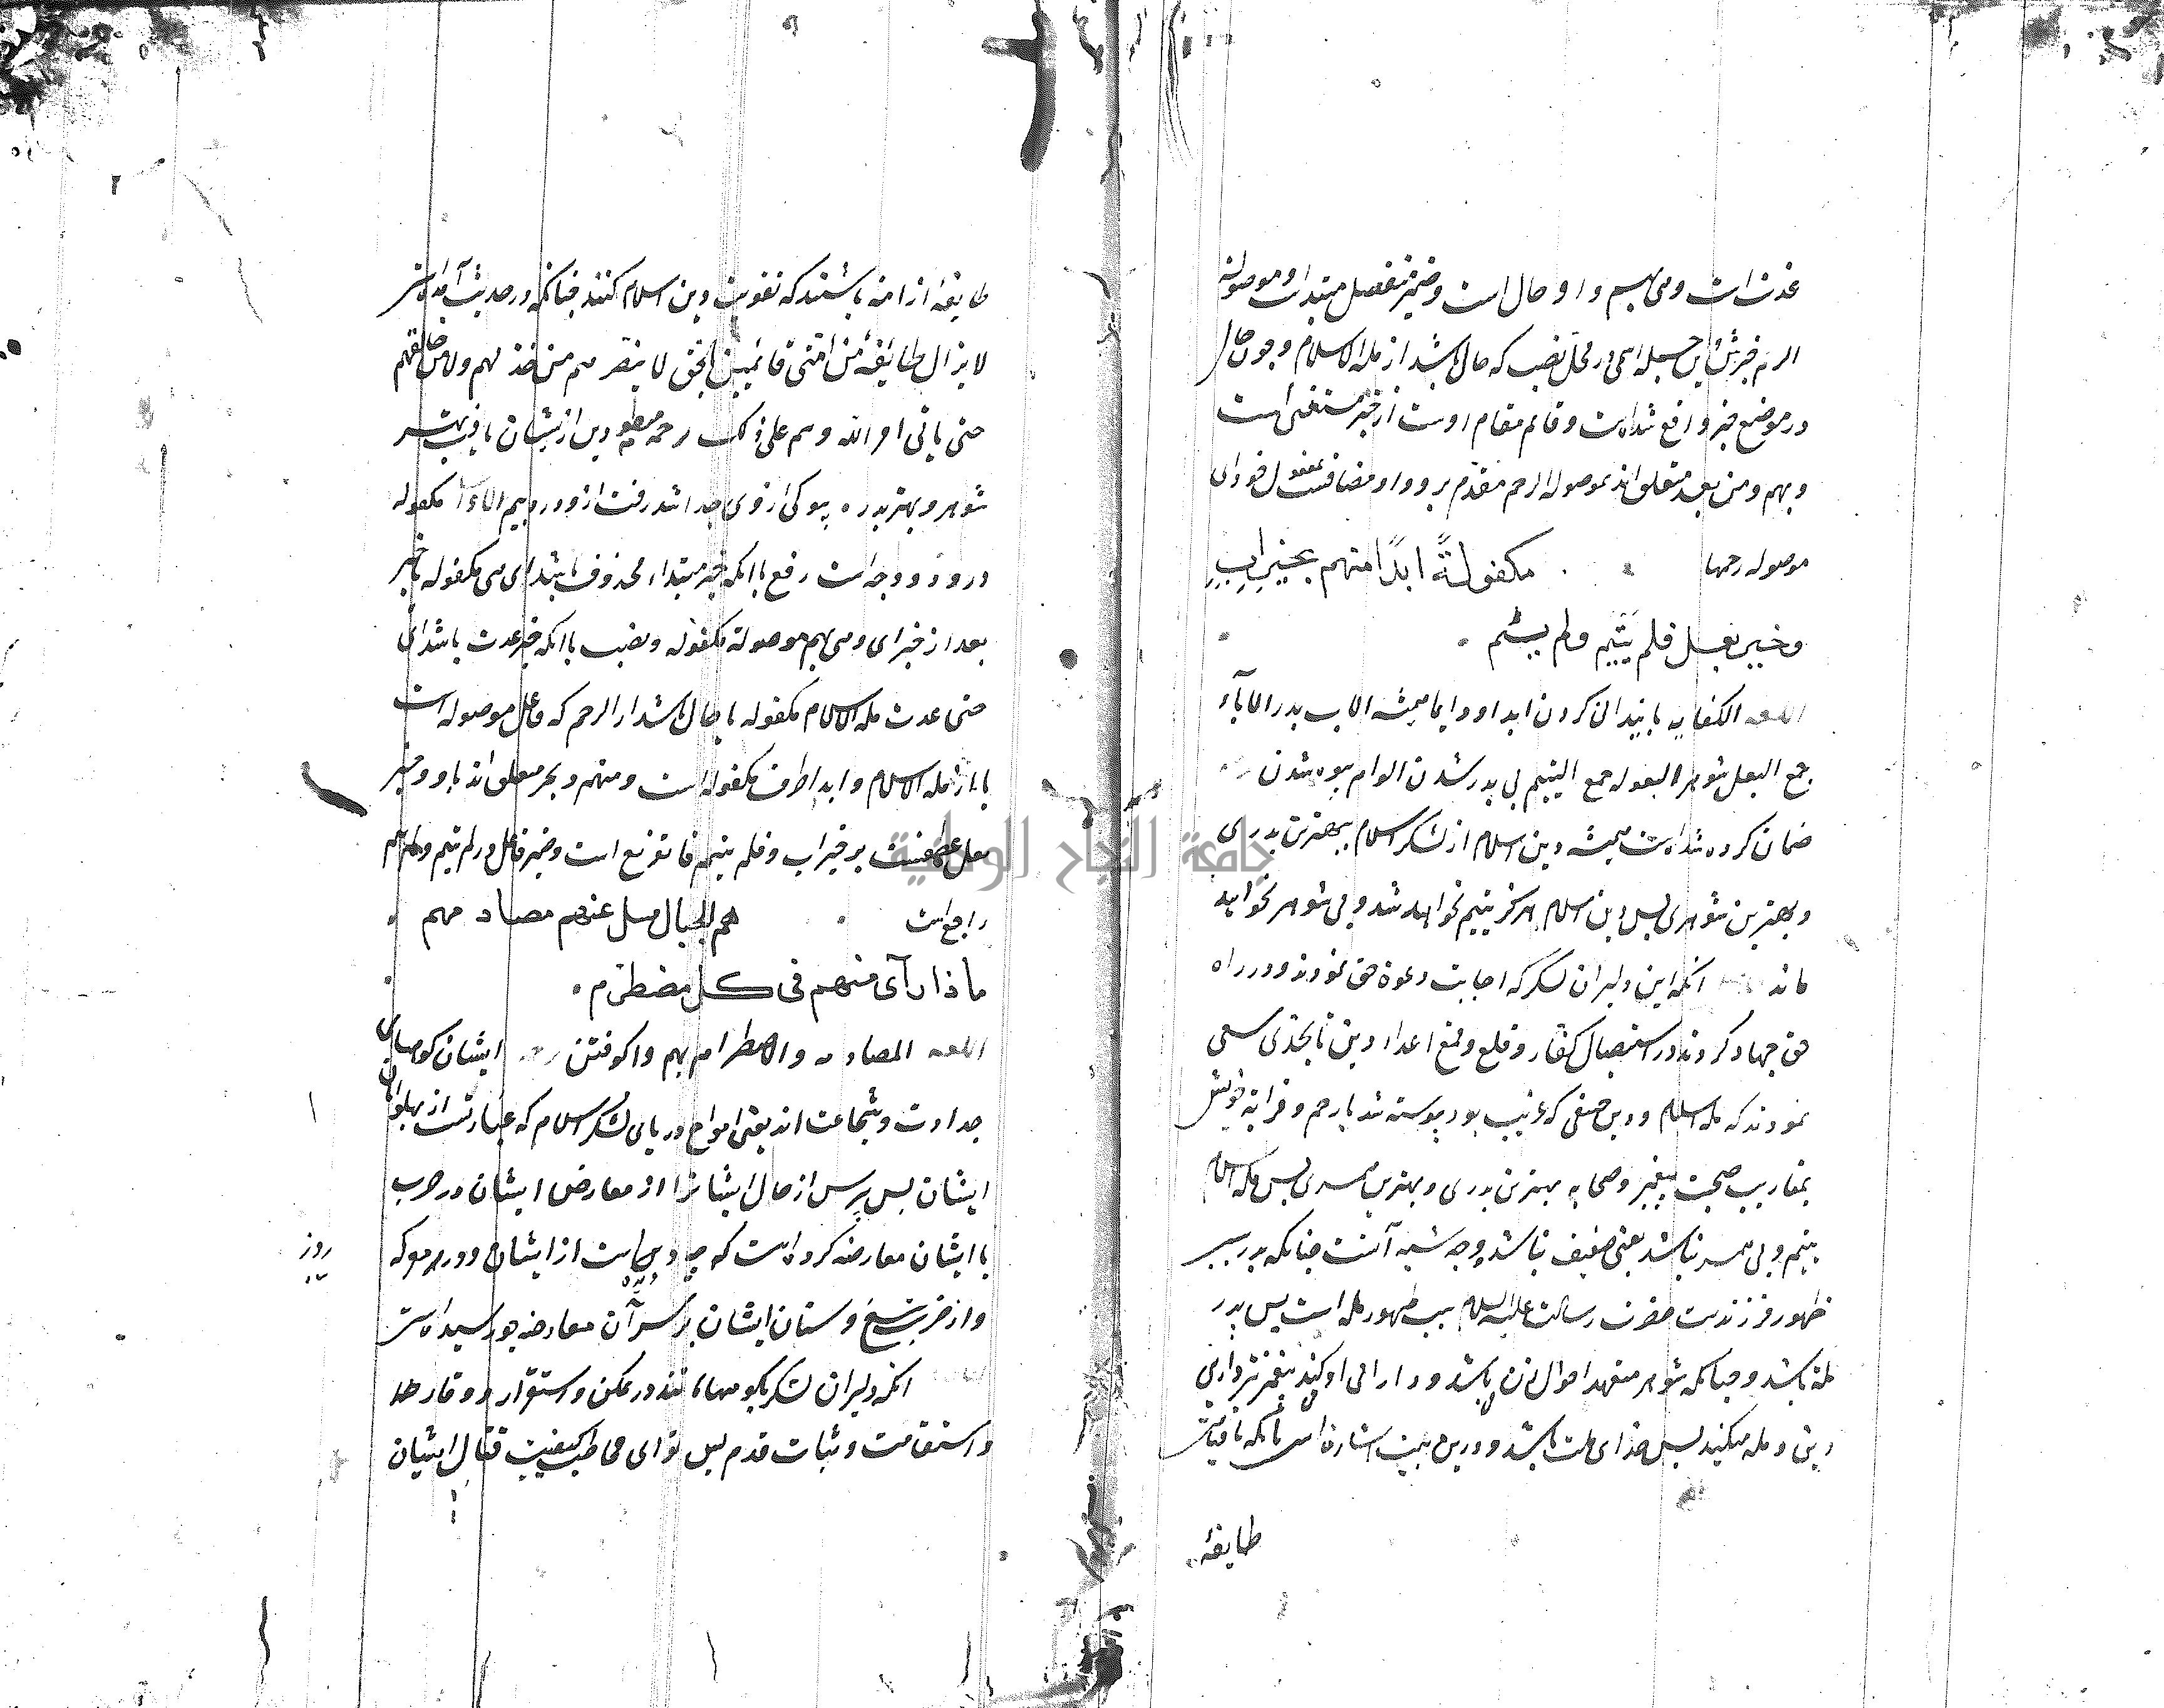 غدت است وهی بهم واو حال است وضمیر منفصل مبتدا و موصولة
الرحم خبرش این جمله اسمی در محل نصب که حال باشد از ملة الاسلام و چون حال
در موضع خبر واقع شده است و قائم مقام اوست از خبر مستغنی است
وبهم ومن بعد متعلق اند بموصولة الرحم مقدم برو واو مضافست
موصولة رحمها مکفولةً ابدًا منهم بخیر ابٍ
وخیر بعل فلم یَتیَم ولم یئم
اللغه الکفایه پایندانی کردن ابدا و دایما همیشه الاب پدر الآباء
جمع البعل شوهر البعوله جمع الیتیم بی پدر شدن الوام بیوه شدن
ضمان کرده شده است همیشه دین اسلام از لشکر اسلام ببهترین پدری
و بهترین شوهری پس دین اسلام هرگز یتیم نخواهد شد و بی شوهر نخواهد
ماند انکه این دلیران لشکر که اجابت دعوة حق نمودند و در راه
حق جهاد کردند و در استیصال کفار و قلع و قمع اعداء دین تا بحدی سعی
نمودند که ملة اسلام و دین حنیفی که غریب بود پیوسته شد با رحم و قرابة خویش
بمقاربت صحبت پیغمبر و صحابه بهترین پدری و بهترین همسری پس ملة اسلام
یتیم و بی همسر نباشد یعنی ضعیف نباشد وجه شبه آنست چنانکه پدر سبب
ظهور فرزندست حضرت رسالت علیه السلام سبب ظهور ملة است پس پدر
ملة باشد و چنانکه شوهر متعهد احوال زن باشد و دارائی او کند پیغمبر نیز دارائی
دین و ملة میکند پس خدای ملت باشد و درین بیت اشارة است بانکه تا قیامت
طایفۀ
طایفۀ از امة باشند که تقویت دین اسلام کنند چنانکه در حدیث آمده است
لا یزال طائفة من امتی قائمین بالحق لا یضرهم من خذلهم ولا من خالفهم
حتی یاتی امر الله وهم علی ذلک
شوهر و بهتر پدر
در و دو وجه است رفع باانکه خبر مبتداء محذوف باشد ای هی مکفوله یا خبر
بعد از خبر ای وهی بهم موصولة مکفوله و نصب باانکه خبر غدت باشد ای
حتی غدت ملة الاسلام مکفوله یا حال باشد از الرحم که فاعل موصوله است
یا از ملة الاسلام وابدا ظرف مکفوله است ومنهم وبخیر متعلق اند باو وخیر
بعل عطفست بر خیر اب وفلم یتیم فا تفریع است وضمیر فاعل در لم یتیم ولم یئم
راجع است هم الجبال فسل عنهم مصادمهم
ماذا رآی منهم فی کل مصطدم
اللغه المصادمه والاصطدام بهم واکوفتن ایشان کوههای
جدادت و شجاعت اند یعنی امواج دریای لشکر اسلام که عبارتست از پهلوانان
ایشان پس پرس از حال ایشانرا از معارض ایشان در حرب
با ایشان معارضه کرده است که چه دیده است از ایشان در روز معرکه
واز ضرب تیغ و سنان ایشان بر سر آن معارضه چه رسیده است
انکه دلیران لشکر بکوهها مانند در تمکن و استقرار و وقار
واستقامت و ثبات قدم پس توای مخاطب کیفیت قتال ایشان
روز